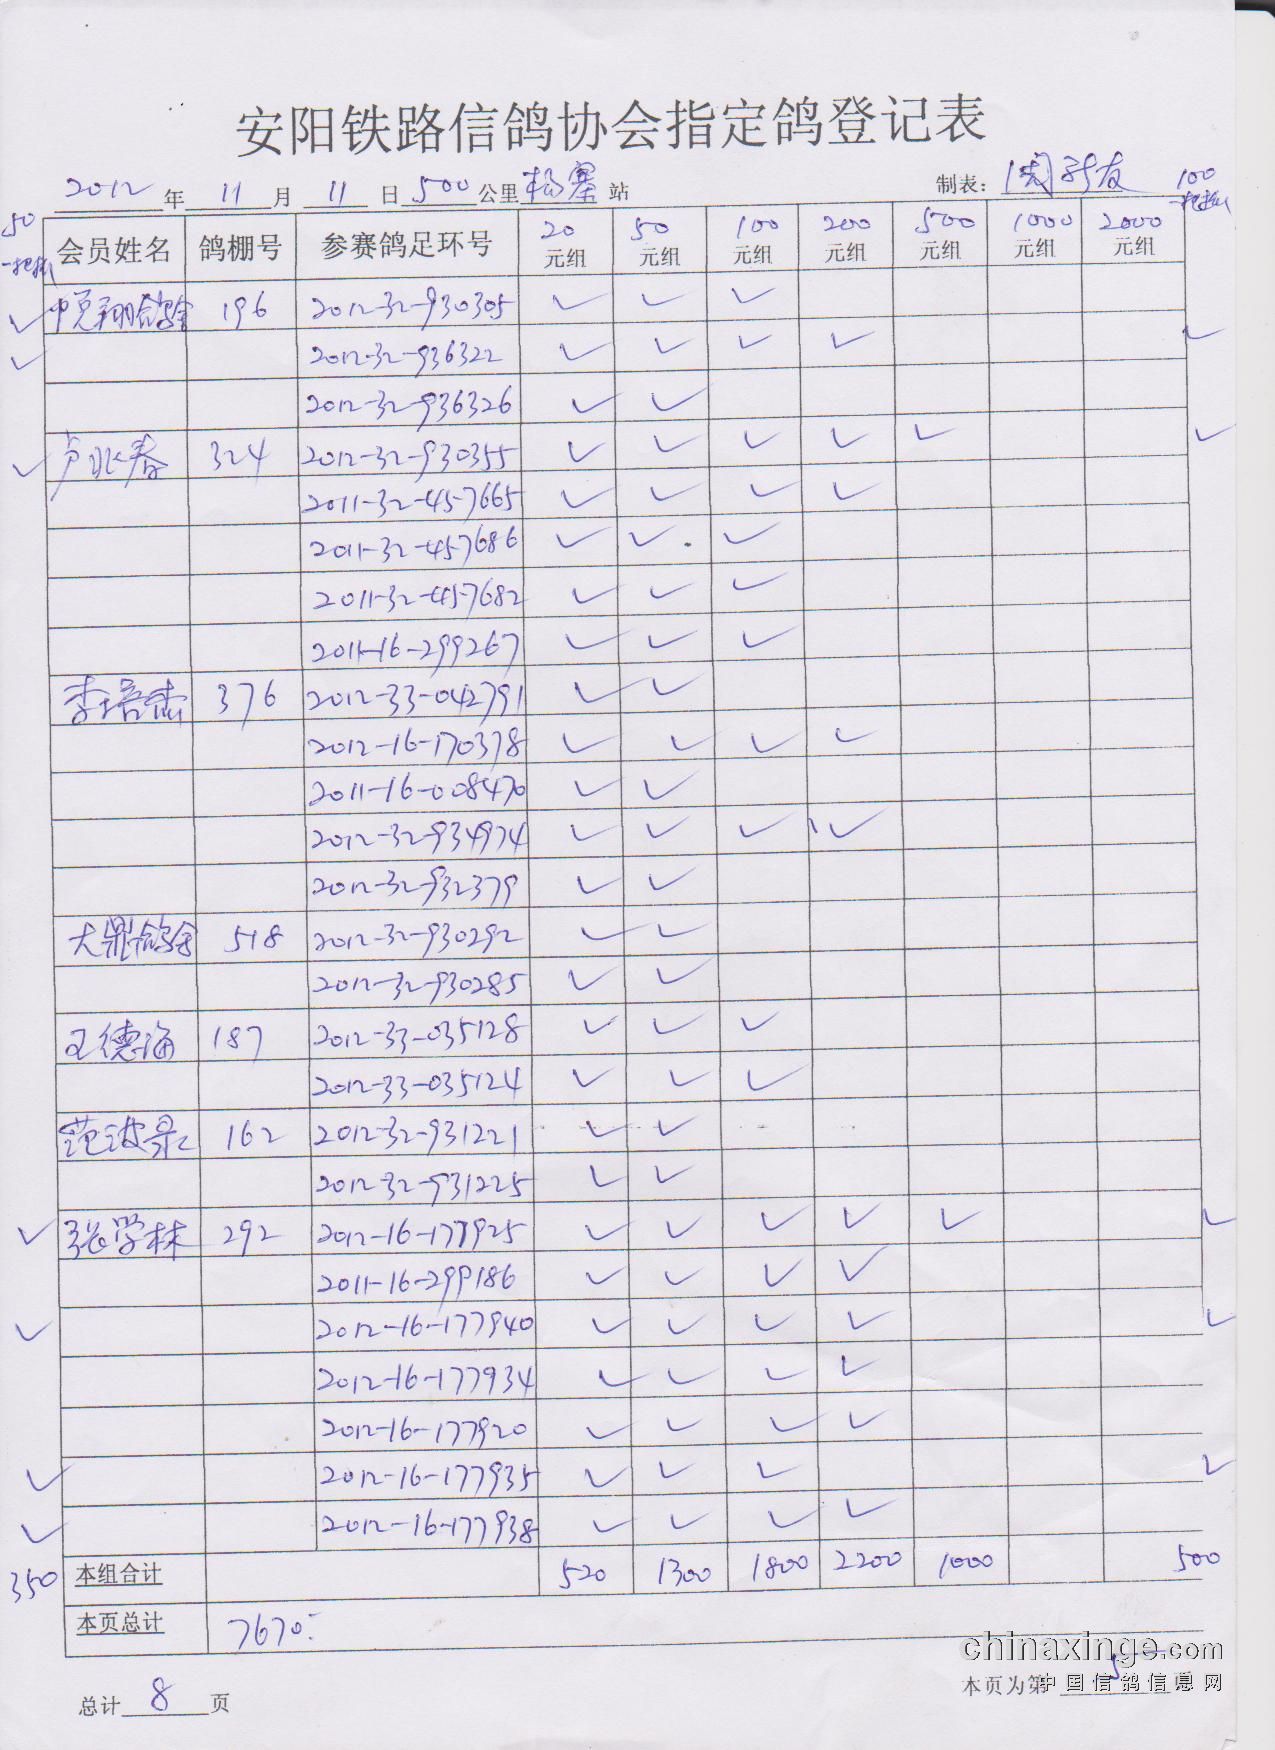 安阳铁路信鸽协会指定鸽登记表
2012 年 11 月 11 日 500 公里 杨寨 站 制表:
50 100
会员姓名 鸽棚号 参赛鸽足环号 20元组 50元组 100元组 200元组 500元组 1000元组 2000元组
✓ 196 2012-32-930305 ✓ ✓ ✓
✓ 2012-32-936322 ✓ ✓ ✓ ✓ ✓
2012-32-936326 ✓ ✓
✓ 卢兆春 324 2012-32-930355 ✓ ✓ ✓ ✓ ✓ ✓
2011-32-457665 ✓ ✓ ✓ ✓
2011-32-457686 ✓ ✓ ✓
2011-32-457682 ✓ ✓ ✓
2011-16-299267 ✓ ✓ ✓
李培杰 376 2012-33-042791 ✓ ✓
2012-16-170378 ✓ ✓ ✓ ✓
2011-16-008470 ✓ ✓
2012-32-934974 ✓ ✓ ✓ ✓
2012-32-932379 ✓ ✓
大鼎鸽舍 518 2012-32-930292 ✓ ✓
2012-32-930285 ✓ ✓
王德海 187 2012-33-035128 ✓ ✓ ✓
2012-33-035124 ✓ ✓ ✓
162 2012-32-931221 ✓ ✓
2012-32-931225 ✓ ✓
✓ 张学林 292 2012-16-177925 ✓ ✓ ✓ ✓ ✓ ✓
2011-16-299186 ✓ ✓ ✓ ✓
✓ 2012-16-177940 ✓ ✓ ✓ ✓ ✓
2012-16-177934 ✓ ✓ ✓ ✓
2012-16-177920 ✓ ✓ ✓ ✓
✓ 2012-16-177935 ✓ ✓ ✓ ✓
✓ 2012-16-177938 ✓ ✓ ✓ ✓
350 本组合计 520 1300 1800 2200 1000 500
本页总计 7670:
chinaxinge.com
中国信鸽信息网
总计 8 页 本页为第 5